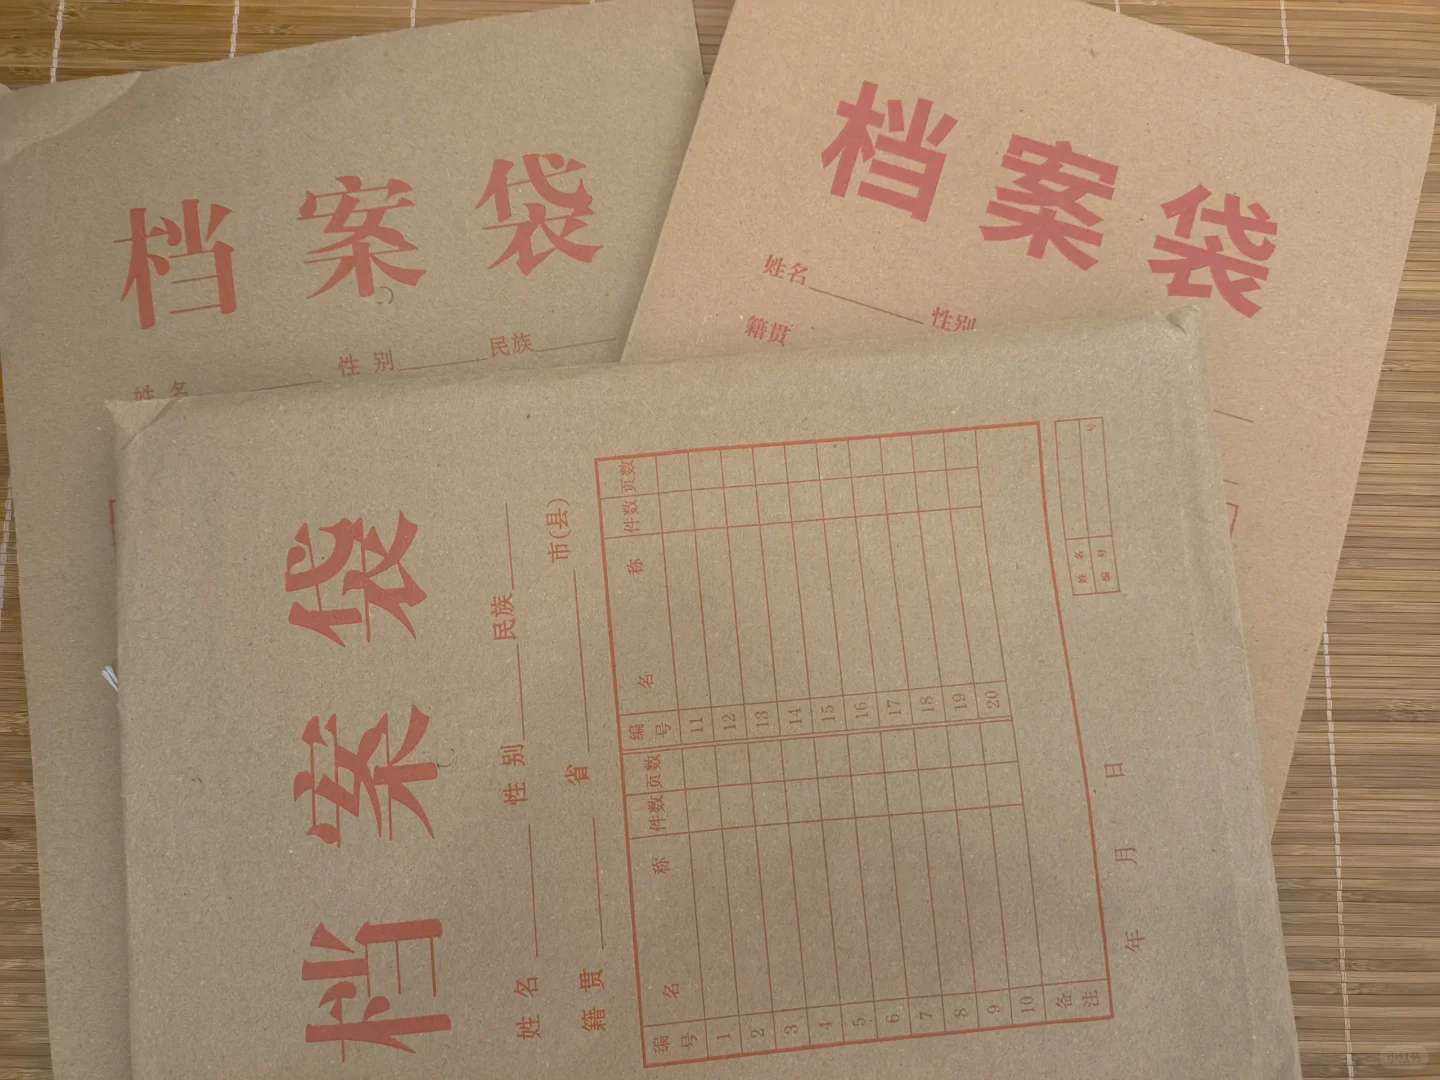 档案袋
姓名 性别 民族
档案袋
姓名 性别
籍贯
档案袋
姓名 性别 民族
籍贯 省 市(县)
编号 名称 件数 页数 编号 名称 件数 页数
1 11
2 12
3 13
4 14
5 15
6 16
7 17
8 18
9 19
10 20
备注
姓名
编号 号
年 月 日